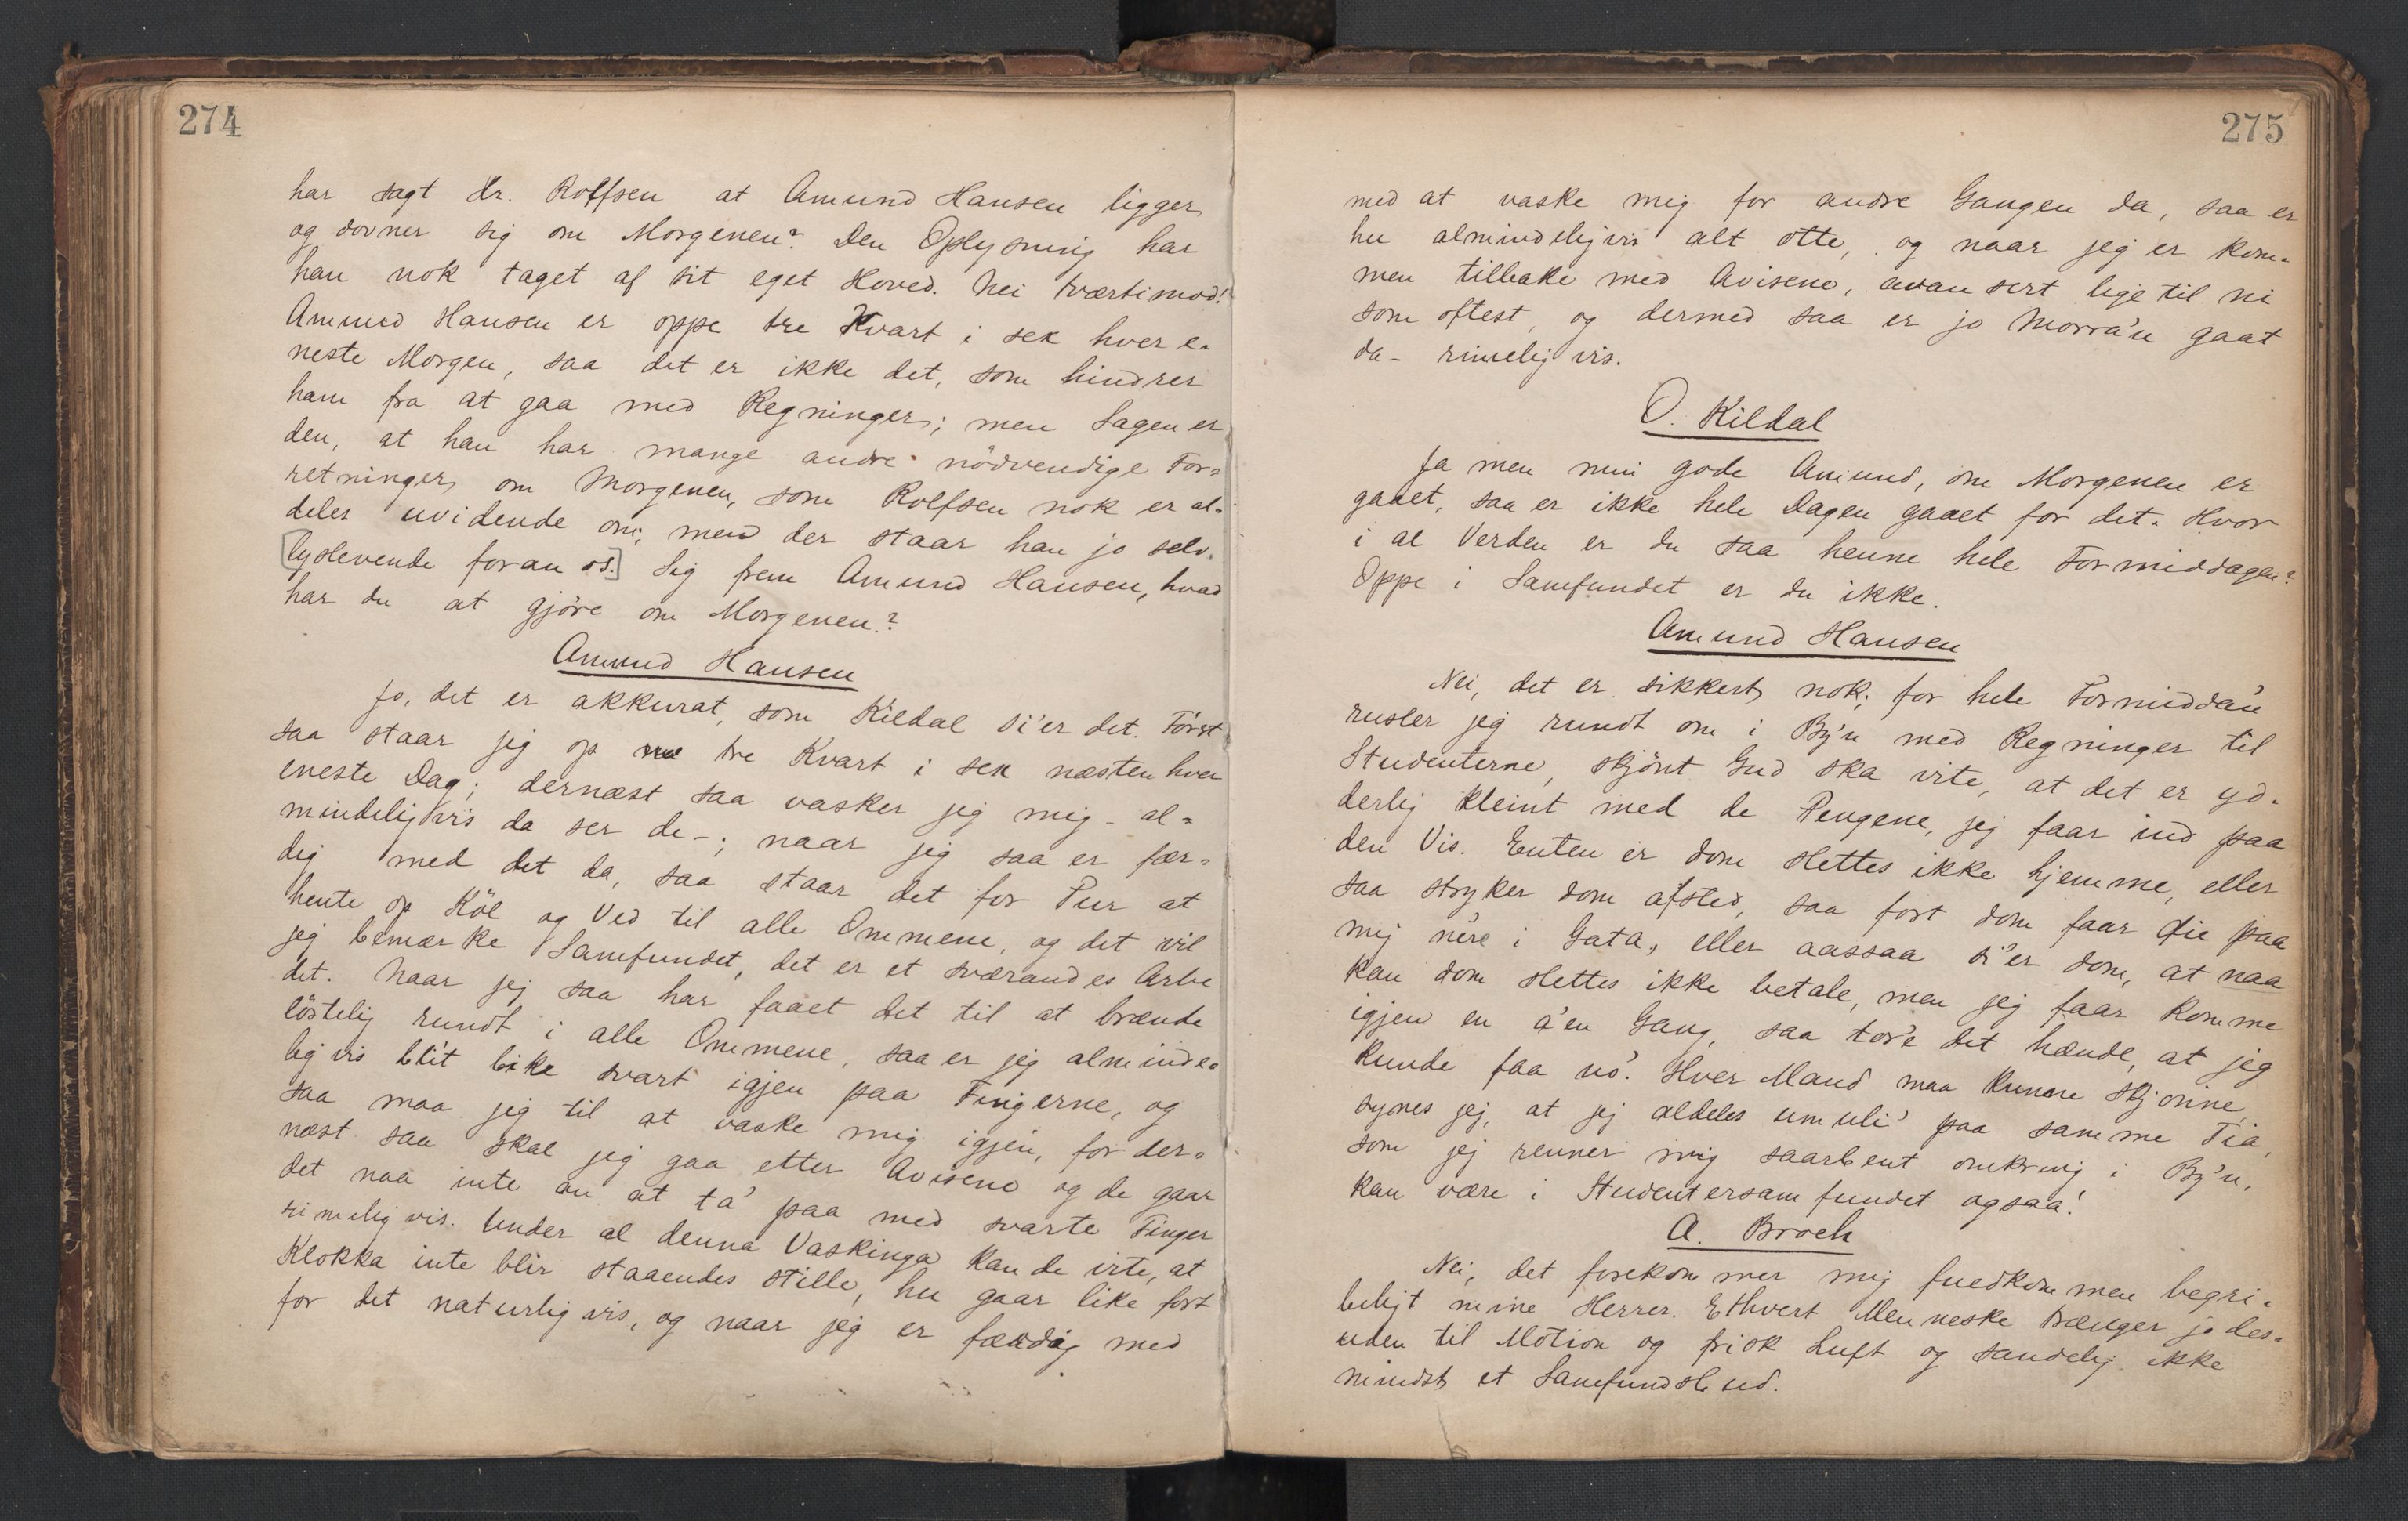 274
har sagt Hr. Rolfsen at Amund Hansen ligger
og dovner sig om Morgenen? Den Oplysning har
han nok taget af sit eget Hoved. Nei tværtimod!
Amund Hansen er oppe tre Kvart i sex hver e-
neste Morgen, saa det er ikke det, som hindrer
ham fra at gaa med Regninger; men Sagen er
den, at han har mange andre nödvendige For-
retninger om Morgenen, som Rolfsen nok er al-
deles uvidende om; men der staar han jo selv.
[lyslevende foran os.] Sig frem Amund Hansen, hvad
har du at gjöre om Morgenen?
Amund Hansen
Jo, det er akkurat, som Kildal si'er det. Först
saa staar jeg op tre Kvart i sex næsten hver
eneste Dag; dernæst saa vasker jeg mig - al-
mindeligvis da ser de -; naar jeg saa er fær-
dig med det da, saa staar det for Tur at
hente op Köl og Ved til alle Ommene, og det vil
jeg bemærke Samfundet, det er et sværandes Arbe
det. Naar jeg saa har faaet det til at brænde
löstelig rundt i alle Ommene, saa er jeg alminde-
ligvis blit like svart igjen paa Fingerne, og
saa maa jeg til at vaske mig igjen, for der-
næst saa skal jeg gaa etter Avisene og de gaar
det naa inte an at ta' paa med svarte Finger
rimeligvis. Under al denna Vaskinga kan de vite, at
Klokka inte blir staaendes stille, hu gaar like fort
for det naturligvis, og naar jeg er færdig med
275
med at vaske mig for andre Gangen da, saa er
hu almindeligvis alt otte, og naar jeg er kom-
men tilbake med Avisene, avansert lige til ni
som oftest, og dermed saa er jo Morra'n gaat
da - rimeligvis.
O. Kildal
Ja men min gode Amund, om Morgenen er
gaaet, saa er ikke hele Dagen gaaet for det. Hvor
i al Verden er du saa henne hele Formiddagen?
Oppe i Samfundet er du ikke.
Amund Hansen
Nei, det er sikkert nok; for hele Formidda'n
rusler jeg rundt om i By'n med Regninger til
Studenterne, skjönt Gud ska vite, at det er yd-
derlig kleint med de Pengene, jeg faar ind paa
den Vis. Enten er dom slettes ikke hjemme, eller
saa stryker dom afsted, saa fort dom faar öie paa
mig ne're i Gata, eller aassaa si'er dom, at naa
kan dom slettes ikke betale, men jeg faar komme
igjen en a'en Gang, saa tor'e det hænde, at jeg
kunde faa no'. Hver Mand maa kunne skjönne
synes jeg, at jeg aldeles umuli' paa samme Tia,
som jeg renner mig saarbent omkring i By'n,
kan være i Studentersamfundet ogsaa!
A. Broch
Nei, det forekommer mig fuldkommen begri-
beligt mine Herrer. Ethvert Menneske trænger jo des-
uden til Motion og frisk Luft og sandelig ikke
mindst et Samfundsbud.